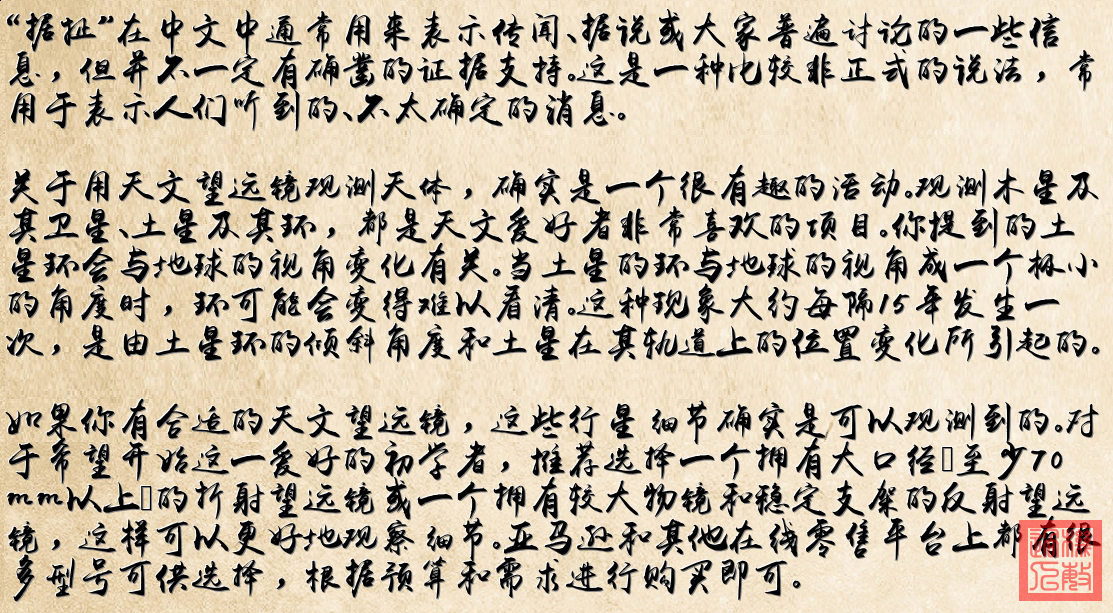 “据扯”在中文中通常用来表示传闻、据说或大家普遍讨论的一些信
息，但并不一定有确凿的证据支持。这是一种比较非正式的说法，常
用于表示人们听到的、不太确定的消息。
关于用天文望远镜观测天体，确实是一个很有趣的活动。观测木星及
其卫星、土星及其环，都是天文爱好者非常喜欢的项目。你提到的土
星环会与地球的视角变化有关。当土星的环与地球的视角成一个极小
的角度时，环可能会变得难以看清。这种现象大约每隔15年发生一
次，是由土星环的倾斜角度和土星在其轨道上的位置变化所引起的。
如果你有合适的天文望远镜，这些行星细节确实是可以观测到的。对
于希望开始这一爱好的初学者，推荐选择一个拥有大口径▯至少70
mm以上▯的折射望远镜或一个拥有较大物镜和稳定支架的反射望远
镜，这样可以更好地观察细节。亚马逊和其他在线零售平台上都有很
多型号可供选择，根据预算和需求进行购买即可。